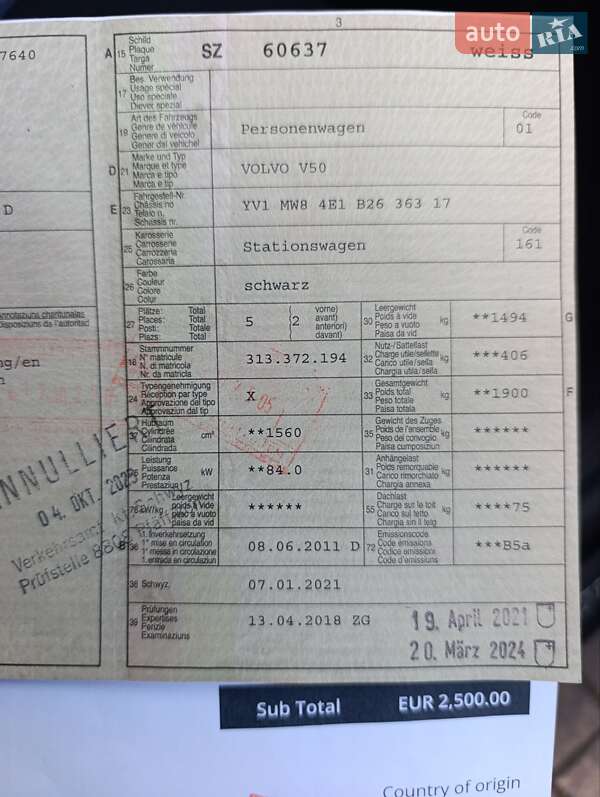 3
auto RIA .com
7640
A 15 Schild Plaque Targa Numer SZ 60637 weiss
17 Bes. Verwendung Usage spécial Uso speciale Diever spezial
19 Art des Fahrzeugs Genre de véhicule Genere di veicolo Gener dal vehichel Personenwagen Code 01
D 21 Marke und Typ Marque et type Marca e tipo Marca e tip VOLVO V50
D E 23 Fahrgestell-Nr. Châssis no Telaio n. Schassis nr. YV1 MW8 4E1 B26 363 17
25 Karosserie Carrosserie Carrozzeria Carossaria Stationswagen Code 161
26 Farbe Couleur Colore Colur schwarz
27 Plätze: Total Places: Total Posti: Totale Plazs: Total 5 (2 vorne) avant) anteriori) davant)
30 Leergewicht Poids à vide Peso a vuoto Paisa da vid kg **1494 G
18 Stammnummer N° matricule N. di matricola Nr. da matricla 313.372.194
32 Nutz-/Sattellast Charge utile/sellette Carico utile/sella Chargia utila/sella kg ***406
24 Typengenehmigung Réception par type Approvazione del tipo Approvaziun dal tip X
33 Gesamtgewicht Poids total Peso totale Paisa totala kg **1900 F
37 Hubraum Cylindrée Cilindrata Cilindrada cm³ **1560
35 Gewicht des Zuges Poids de l'ensemble Peso del convoglio Paisa cumposiziun kg ******
Leistung Puissance Potenza Prestaziun kW **84.0
31 Anhängelast Poids remorquable Carico rimorchiato Chargia annexa kg ******
kW/kg Leergewicht poids à vide peso a vuoto paisa da vid ******
55 Dachlast Charge sur le toit Carico sul tetto Chargia sin il tetg kg ****75
B 36 1. Inverkehrsetzung 1re mise en circulation 1a messa in circolazione 1. entrada en circulaziun 08.06.2011 D
72 Emissionscode Code émissions Codice emissioni Code d'emissiuns ***B5a
38 Schwyz. 07.01.2021
39 Prüfungen Expertises Perizie Examinaziuns 13.04.2018 ZG 19. April 2021
20. März 2024
ANNULLIERT
04. OKT. 2023
Verkehrsamt Kt. Schwyz
Prüfstelle 8808
Sub Total EUR 2,500.00
Country of origin